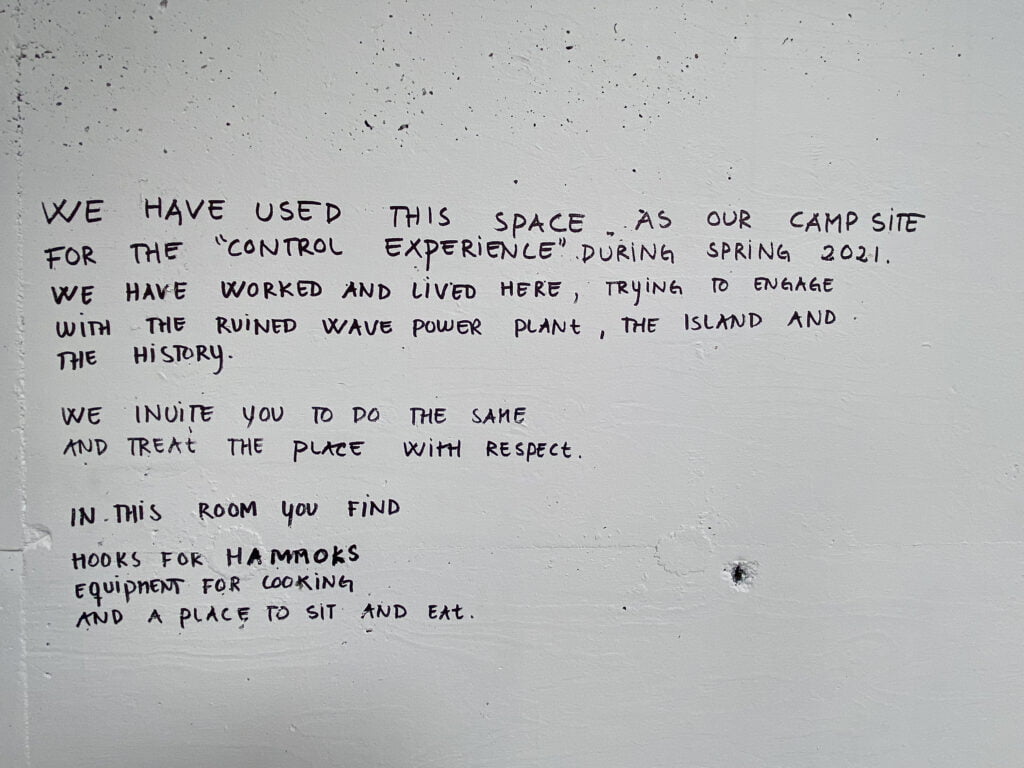 WE HAVE USED THIS SPACE AS OUR CAMP SITE
FOR THE "CONTROL EXPERIENCE" DURING SPRING 2021.
WE HAVE WORKED AND LIVED HERE, TRYING TO ENGAGE
WITH THE RUINED WAVE POWER PLANT, THE ISLAND AND
THE HISTORY.
WE INVITE YOU TO DO THE SAME
AND TREAT THE PLACE WITH RESPECT.
IN THIS ROOM YOU FIND
HOOKS FOR HAMMOKS
EQUIPMENT FOR COOKING
AND A PLACE TO SIT AND EAT.